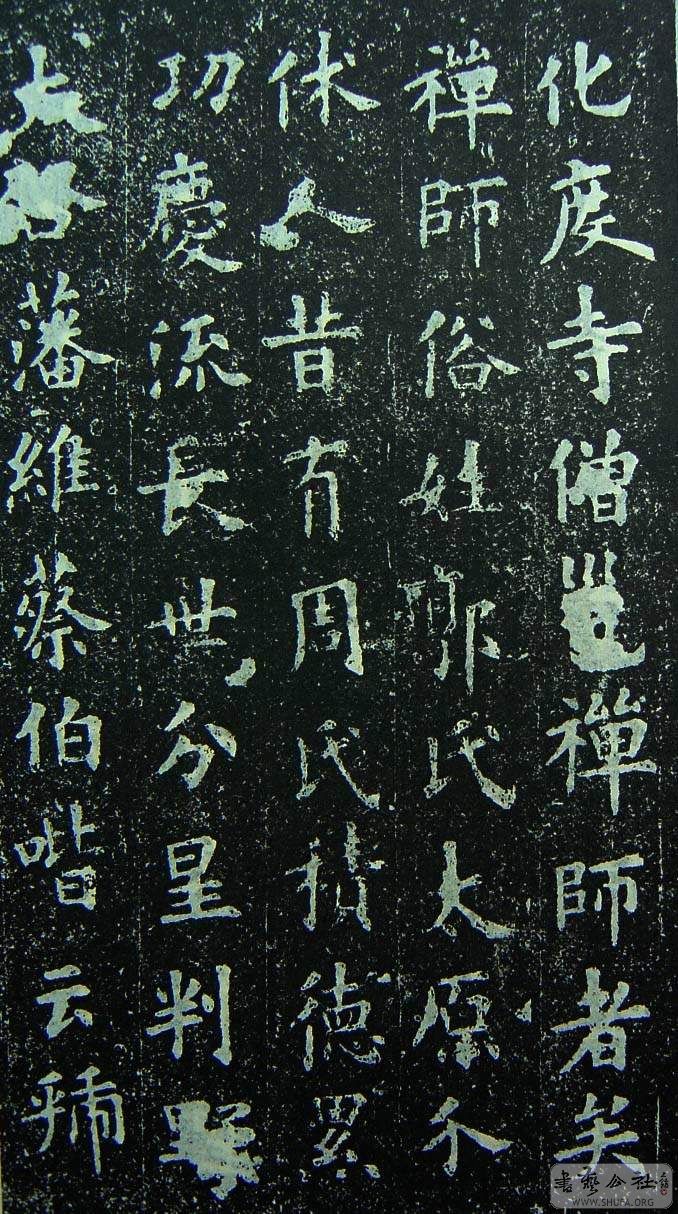 化度寺僧邕禪師者矣
禪師俗姓郭氏大原介
休人昔有周氏積德累
功慶流長世分星判野
藩維蔡伯喈云虢
书艺公社
WWW.SHUFA.ORG